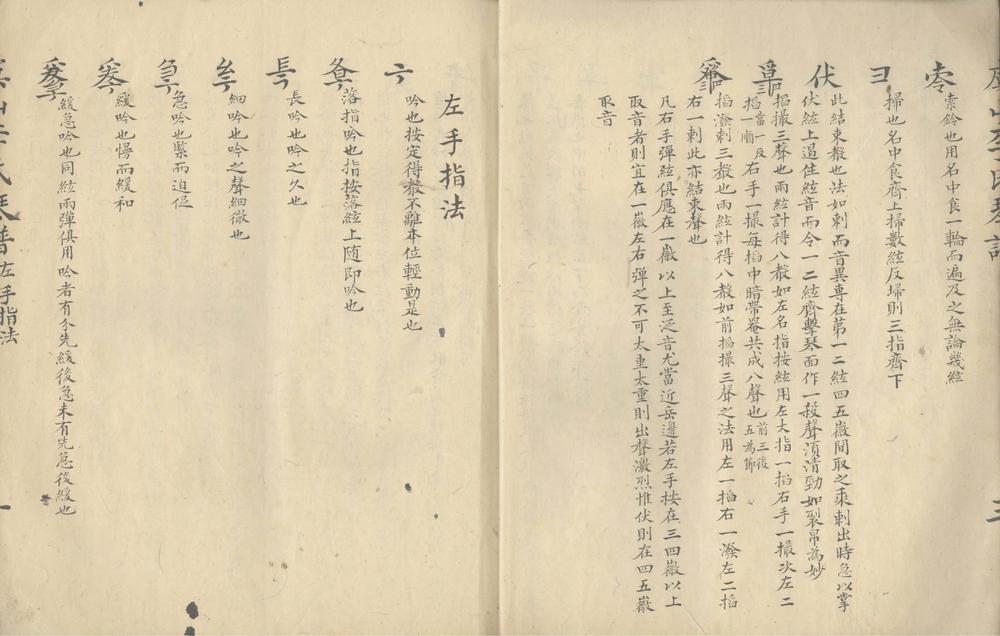 索鈴也用名中食一輪而遍及之無論幾絃
掃也名中食齊上掃數絃反埽則三指齊下
伏
此結束聲也法如刺而音異專在第一二絃四五徽間取之乘刺出時急以掌
伏絃上逼住絃音而令一二絃齊擊琴面作一殺聲須清勁如裂帛為妙
搯撮三聲也兩絃計得八聲如左名指按絃用左大指一搯右手一撮次左二
搯當一反一順右手一撮每搯中暗帶罨共成八聲也前三後五為節
搯潑刺三聲也兩絃計得八聲如前搯撮三聲之法用左一搯右一潑左二搯
右一刺此亦結束聲也
凡右手彈絃俱應在一徽以上至泛音尤當近岳邊若左手按在三四徽以上
取音者則宜在一徽左右彈之不可太重太重則出聲激烈惟伏則在四五徽
取音
左手指法
吟也按定得聲不離本位輕動是也
落指吟也指按落絃上随即吟也
長吟也吟之久也
細吟也吟之聲細微也
急吟也緊而迫促
緩吟也慢而緩和
緩急吟也同絃兩彈俱用吟者有分先緩後急未有先急後緩也
左手指法